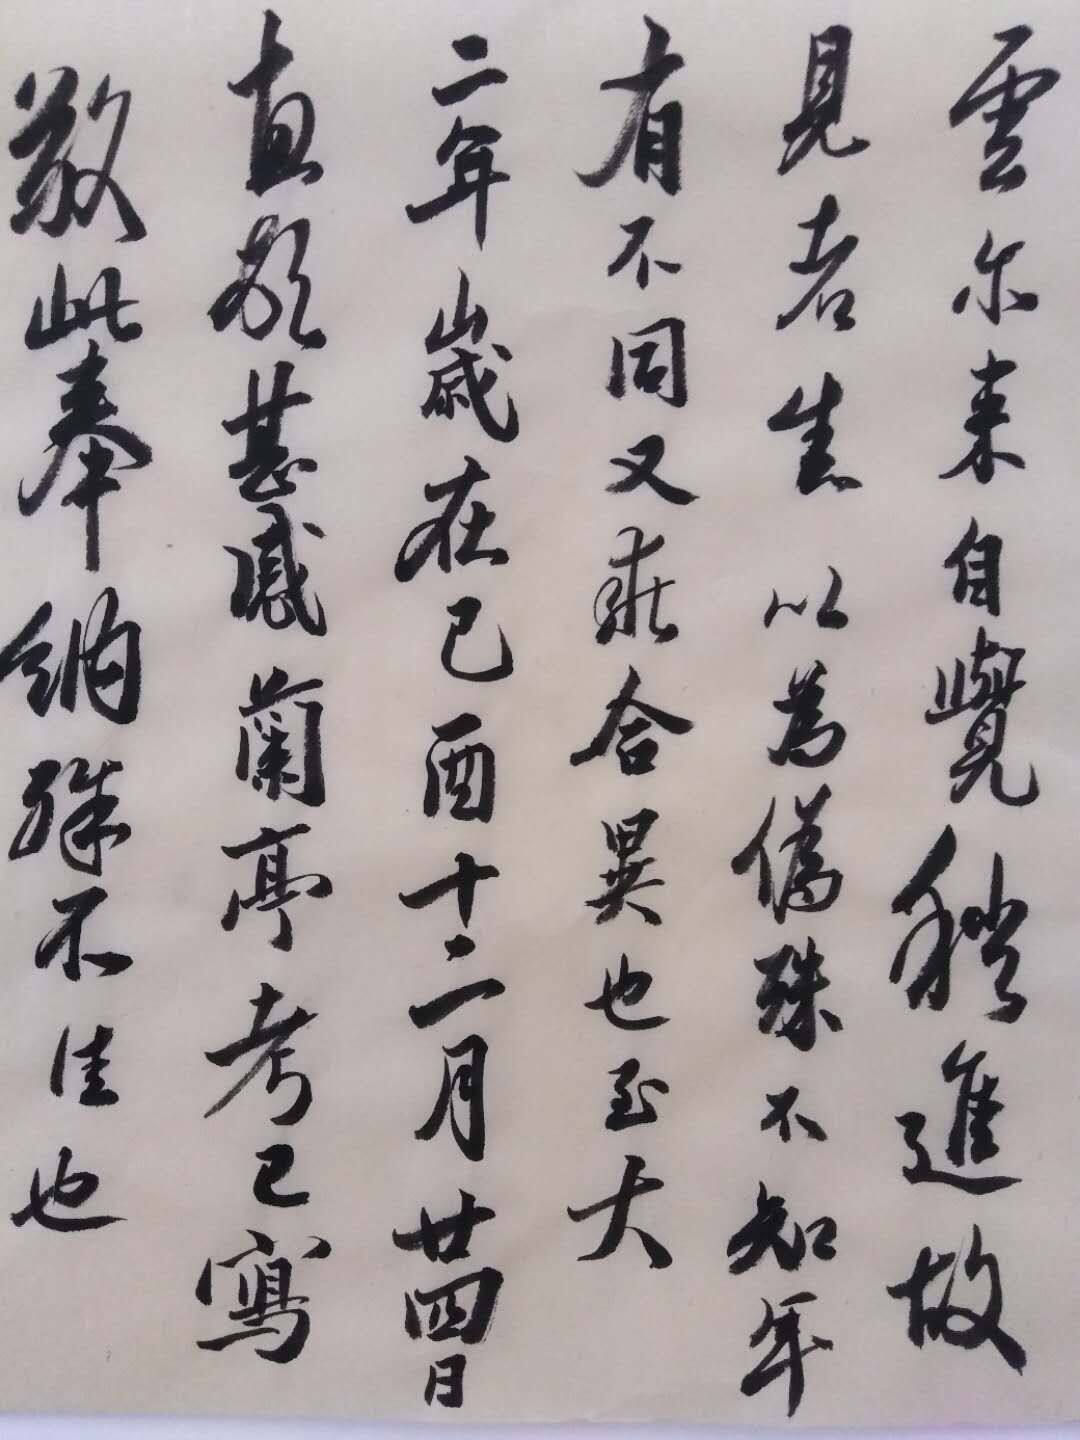 雲尔来自覺稍進故
見者生以為偽殊不知年
有不同又乖合異也至大
二年歲在己酉十二月廿四日
直欲甚感蘭亭考已寫
敬此奉納殊不佳也